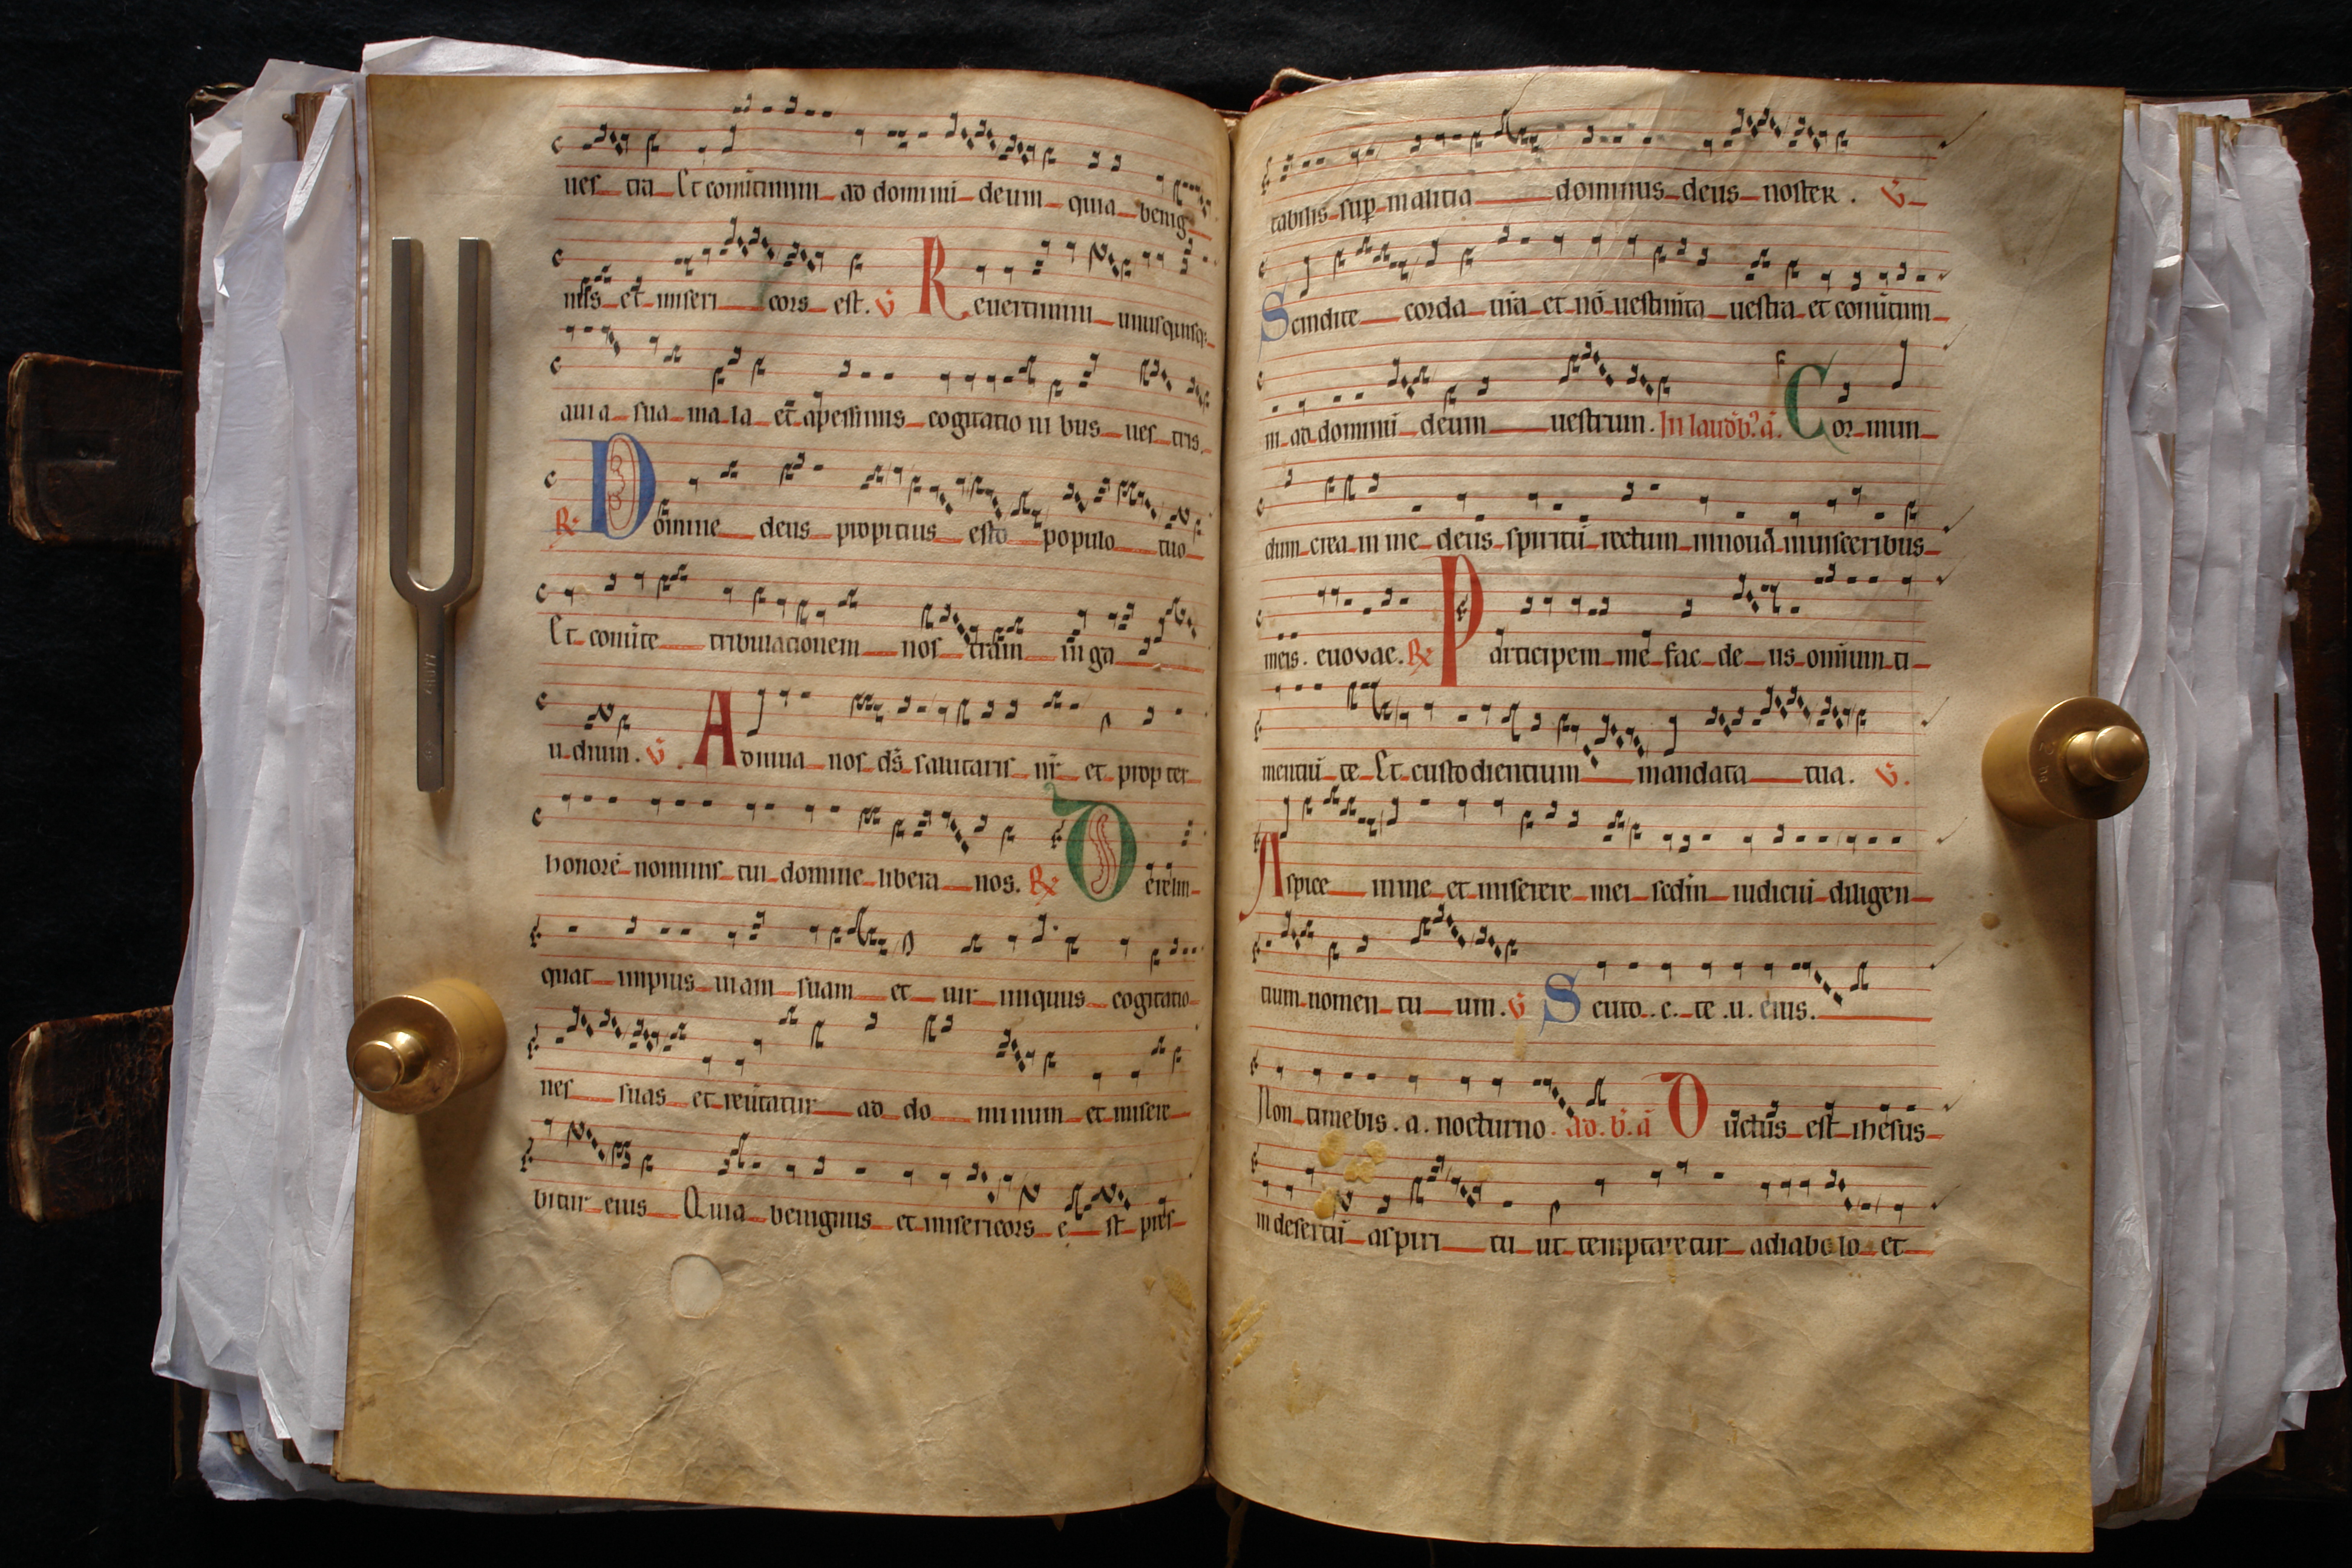 ues tra Et conũtimini ad dominũ deum quia benig
nus et miseri cors est. V Reuertimini unusquisq;
a uia sua ma la et a pessimis cogitatio ni bus ues tris.
R. Domine deus propitius esto populo tuo
Et conũte tribulationem nos tram in ga
u dium. V. Adiuua nos ds̃ salutaris nr̃ et prop ter
honorẽ nominis tui domine libera nos. R Derelin
quat impius uiam suam et uir iniquus cogitatio
nes suas et reũtatur ad do minum et misere
bitur eius Quia benignus et misericors e st pres
tabilis sup malitia dominus deus noster. V
Scindite corda ur̃a et nõ uestimta uestra et conũtim
ni ad dominũ deum uestrum. In laudb'. a. Cor mun
dum crea in me deus spiritũ rectum innoua in uisceribus
meis. euovae. R Participem me fac de us omium ti
mentiũ te Et custodientium mandata tua. V.
Aspice in me et miserere mei scd̃m iudiciũ diligen
tium nomen tu um. V Scuto. c. te .u. eius.
Non timebis. a. nocturno. ad. b. a Ductus est ihesus
in desertũ a spiri tu ut temptaretur a diabolo et